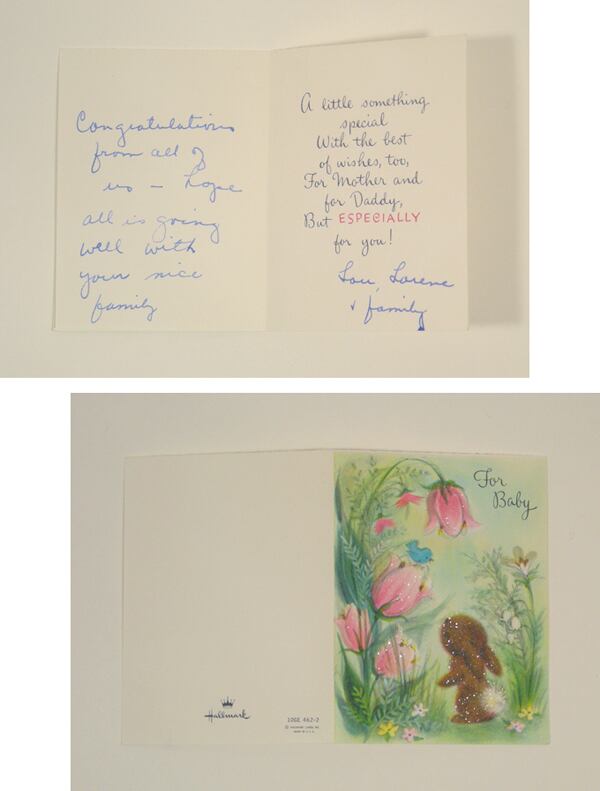 Congratulations
from all of
us – hope
all is going
well with
your nice
family
A little something
special
With the best
of wishes, too,
For Mother and
for Daddy,
But ESPECIALLY
for you!
Lou, Lorene
& family
For
Baby
Hallmark
100E 462-2